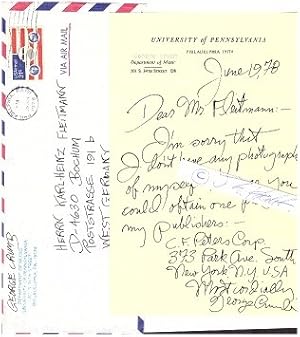 UNIVERSITY of PENNSYLVANIA
PHILADELPHIA 19174
Department of Music
201 S. 34th Street D8
June 1978
Dear Mr. Fleitmann:—
I'm sorry that
I don't have any photographs
of myself. you
could obtain one
my publishers:—
C.F. Peters Corp.
373 Park Ave. South
New York N.Y. USA
Most cordially
George Crumb
VIA AIR MAIL
HERRN KARLHEINZ FLEITMANN
D-4630 BOCHUM
POSTSTRASSE 191 b
WEST GERMANY
GEORGE CRUMB